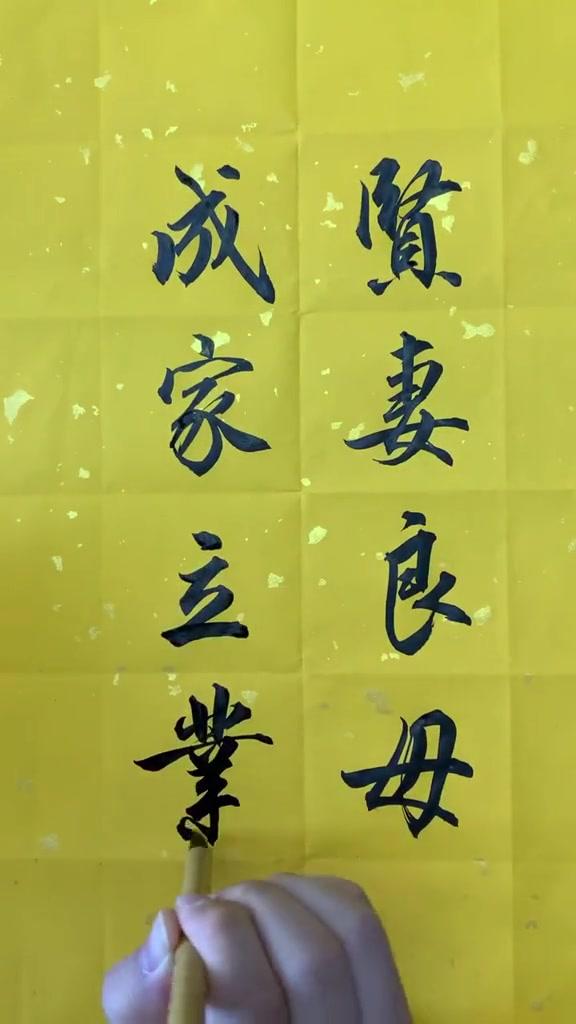 賢妻良母
成家立業